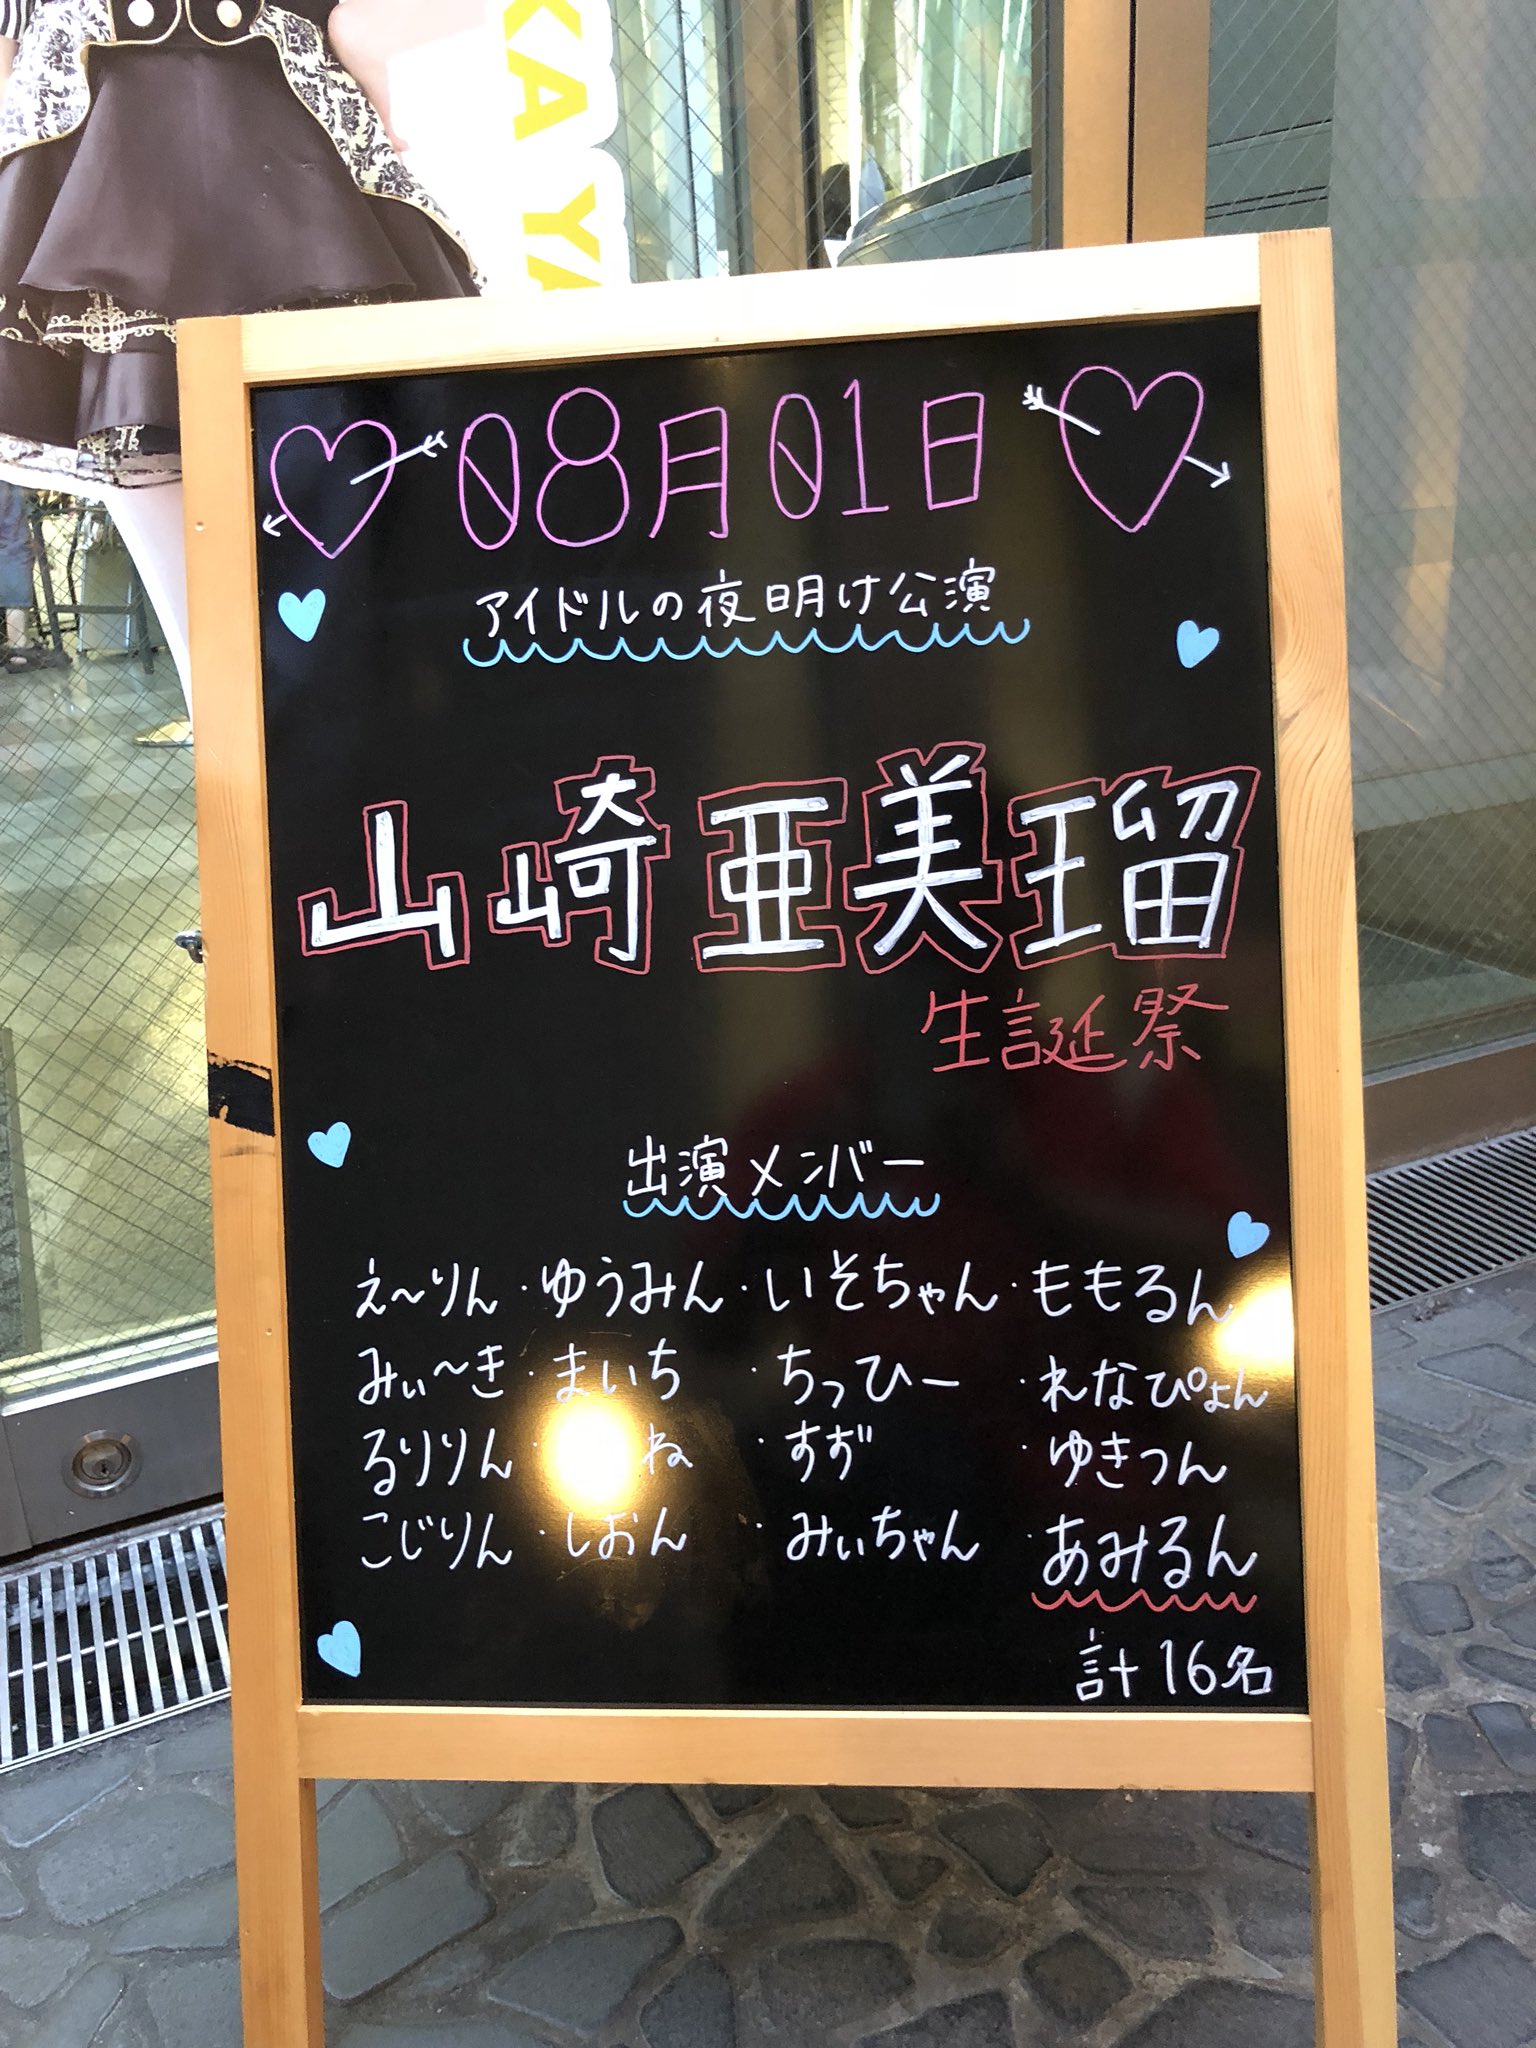 KA YA
08月01日
アイドルの夜明け公演
山崎亜美瑠
生誕祭
出演メンバー
え〜りん・ゆうみん・いそちゃん・ももるん
みぃ〜き・まいち・ちっひー・れなぴょん
るりりん・ね・すず・ゆきつん
こじりん・しおん・みぃちゃん・あみるん
計16名